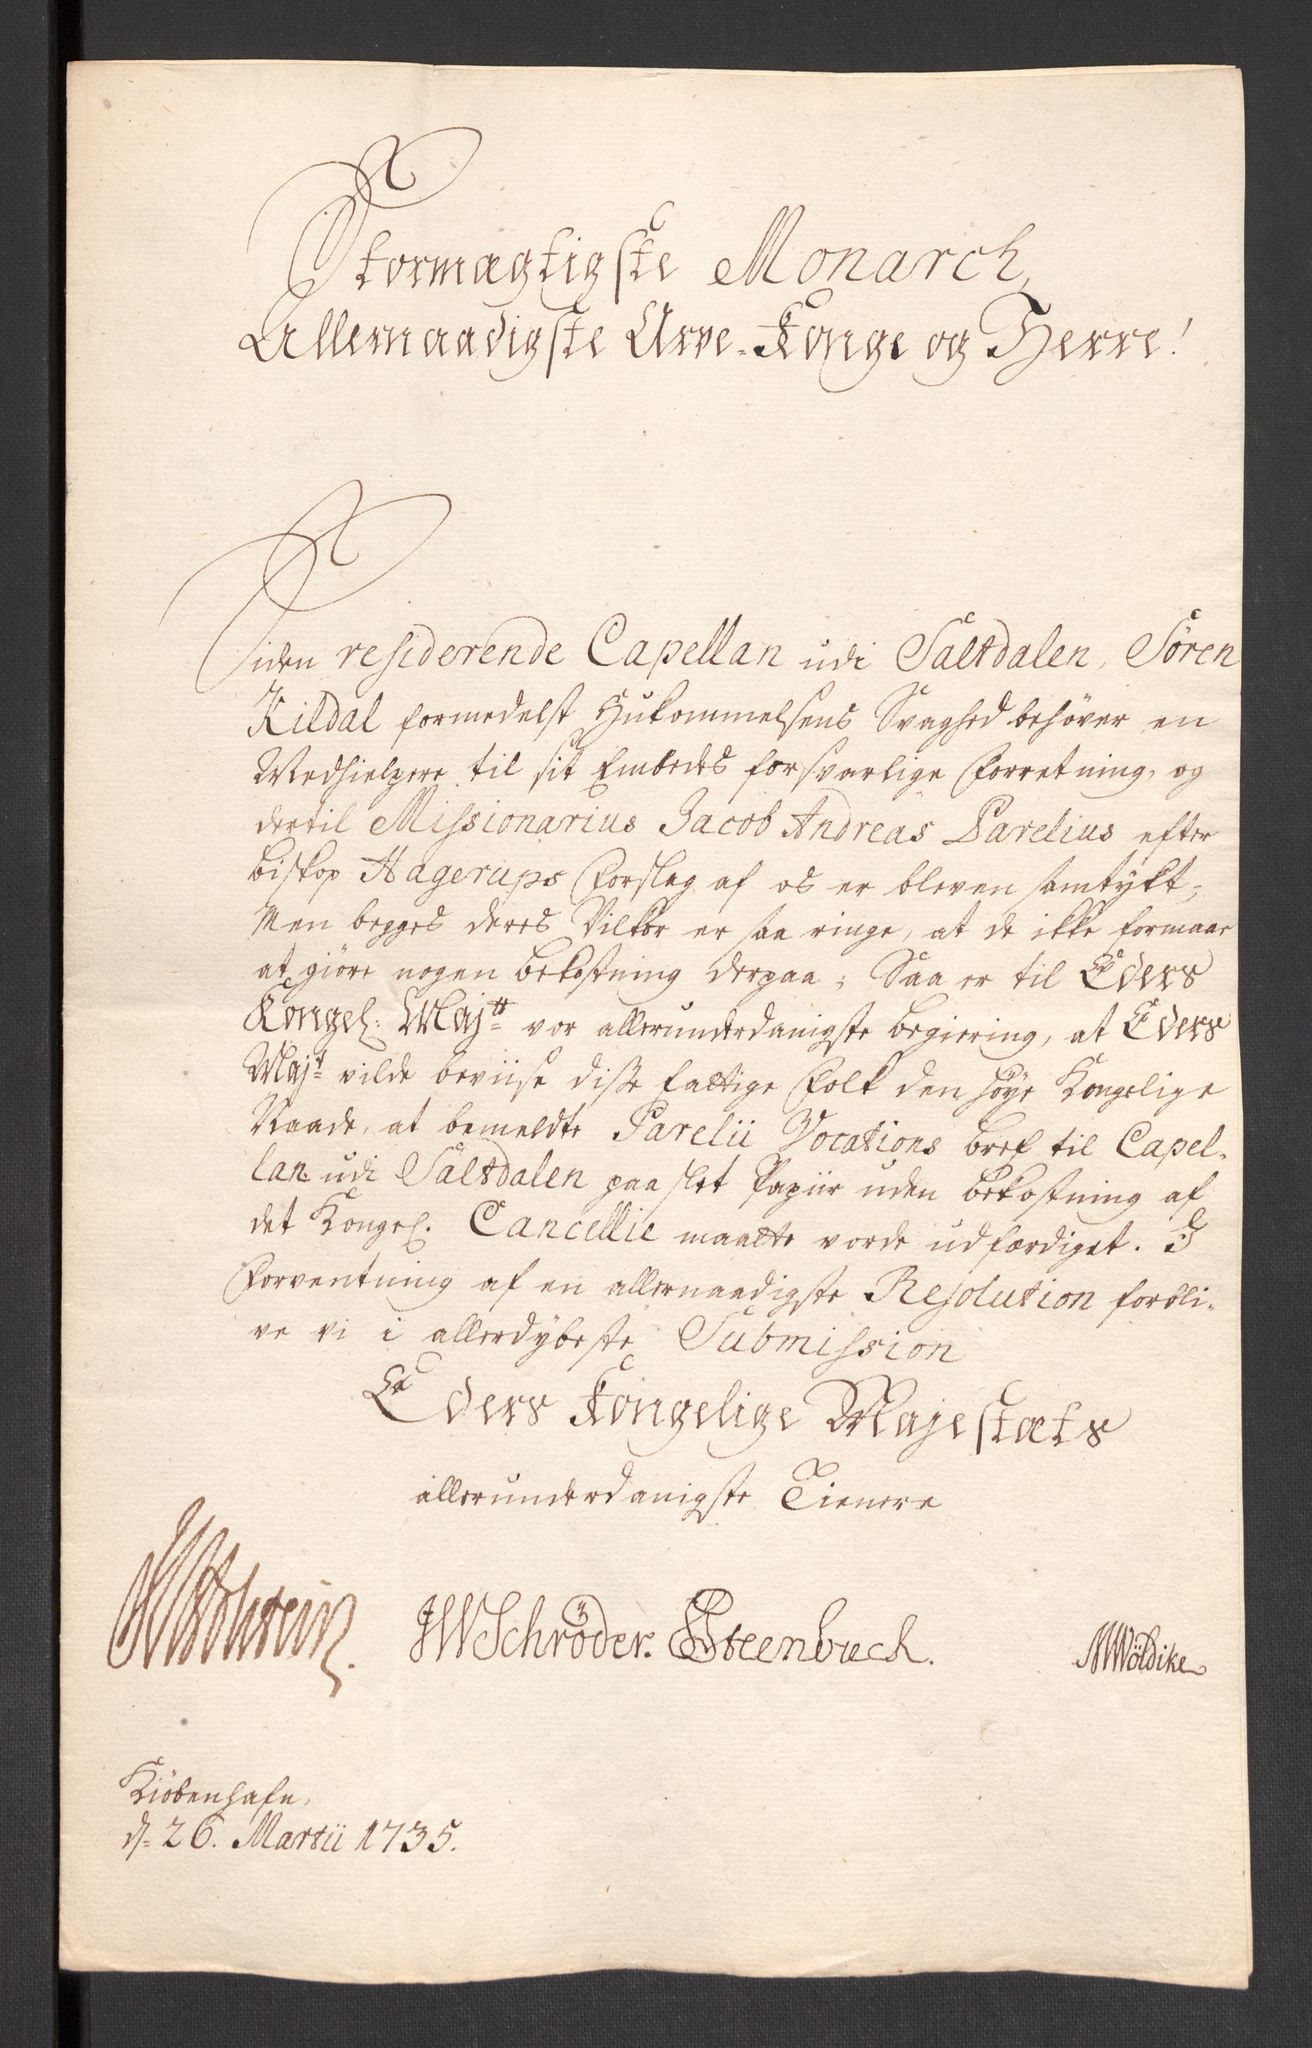 Stormægtigste Monarch,
Allernaadigste Arve-Konge og Herre!
Siden residerende Capellan udi Saltdalen, Sören
Kildal formedelst Hukommelsens Svaghed behøver en
Medhielpere til sit Embedes forsvarlige Forretning, og
dertil Missionarius Jacob Andreas Parelius efter
Biskop Hagerups Forslag af os er bleven samtykt;
Men begges deres Vilkor er saa ringe, at de ikke formaae
at giöre nogen bekostning derpaa; Saa er til Eders
Kongel: Majtt vor allerunderdanigste begiering, at Eders
Majt vilde beviise disse fattige Folk den høye Kongelige
Naade, at bemeldte Parelii Vocations bref til Capel-
lan udi Saltdalen paa slet Papiir uden bekostning af
det Kongel. Cancellie maatte vorde udfærdiget. I
Forventning af en allernaadigste Resolution forbli-
ve vi i allerdybeste Submission
Eders Kongelige Majestæts
allerunderdanigste Tienere
JHolstein. HWSchröder. Steenbuch. MWöldike
Kiöbenhafn,
d. 26. Martii 1735.